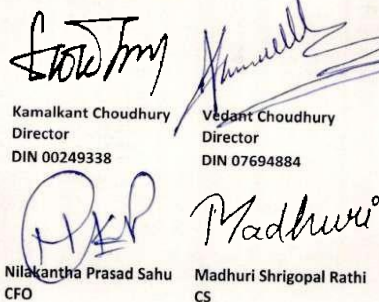 Kamalkant Choudhury
Director
DIN 00249338
Vedant Choudhury
Director
DIN 07694884
Nilakantha Prasad Sahu
CFO
Madhuri
Madhuri Shrigopal Rathi
CS